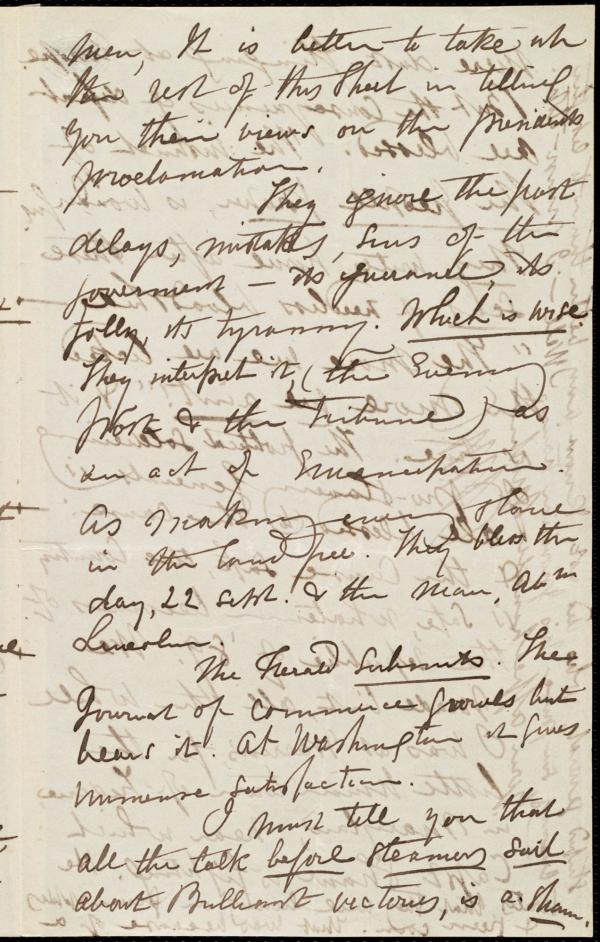 men, It is better to take up
the rest of this sheet in telling
you their views on the presidents
proclamation.
They ignore the past
delays, mistakes, sins of the
government — its ignorance, its
folly, its tyranny. Which is wise.
They interpret it, (the Evening
Post & the Tribune) as
an act of Emancipation.
As making every slave
in the land free. They bless the
day, 22 sept. & the man, Abm
Lincoln.
The Herald submits. The
Journal of commerce growls but
bears it. At Washington it gives
immense satisfaction.
I must tell you that
all the talk before steamers sail
about Brilliant victories, is a sham.